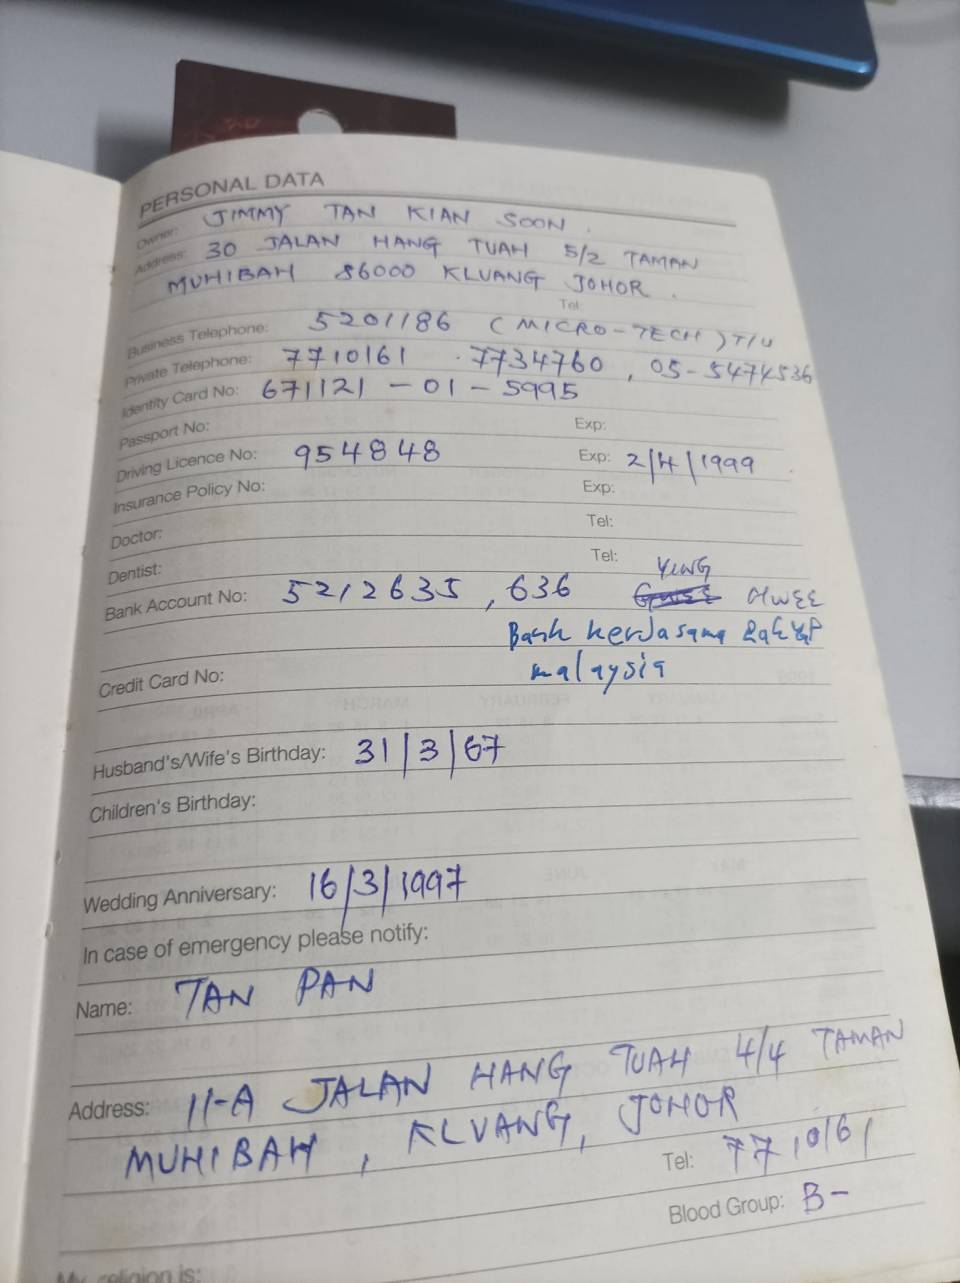 PERSONAL DATA
Owner: JIMMY TAN KIAN SOON.
Address: 30 JALAN HANG TUAH 5/2 TAMAN
MUHIBAH 86000 KLUANG JOHOR.
Tel:
Business Telephone: 5201186 (MICRO-TECH) T/U
Private Telephone: 7710161 . 7734760, 05-5474536
Identity Card No: 671121-01-5995
Passport No: Exp:
Driving Licence No: 954848 Exp: 2/4/1999
Insurance Policy No: Exp:
Doctor: Tel:
Dentist: Tel:
YENG
Bank Account No: 5212635, 636 HWEE
Bank Kerjasama Rakyat
malaysia
Credit Card No:
Husband's/Wife's Birthday: 31/3/67
Children's Birthday:
Wedding Anniversary: 16/3/1997
In case of emergency please notify:
Name: TAN PAN
Address: 11-A JALAN HANG TUAH 4/4 TAMAN
MUHIBAH, KLUANG, JOHOR
Tel: 7710161
Blood Group: B-
My religion is: